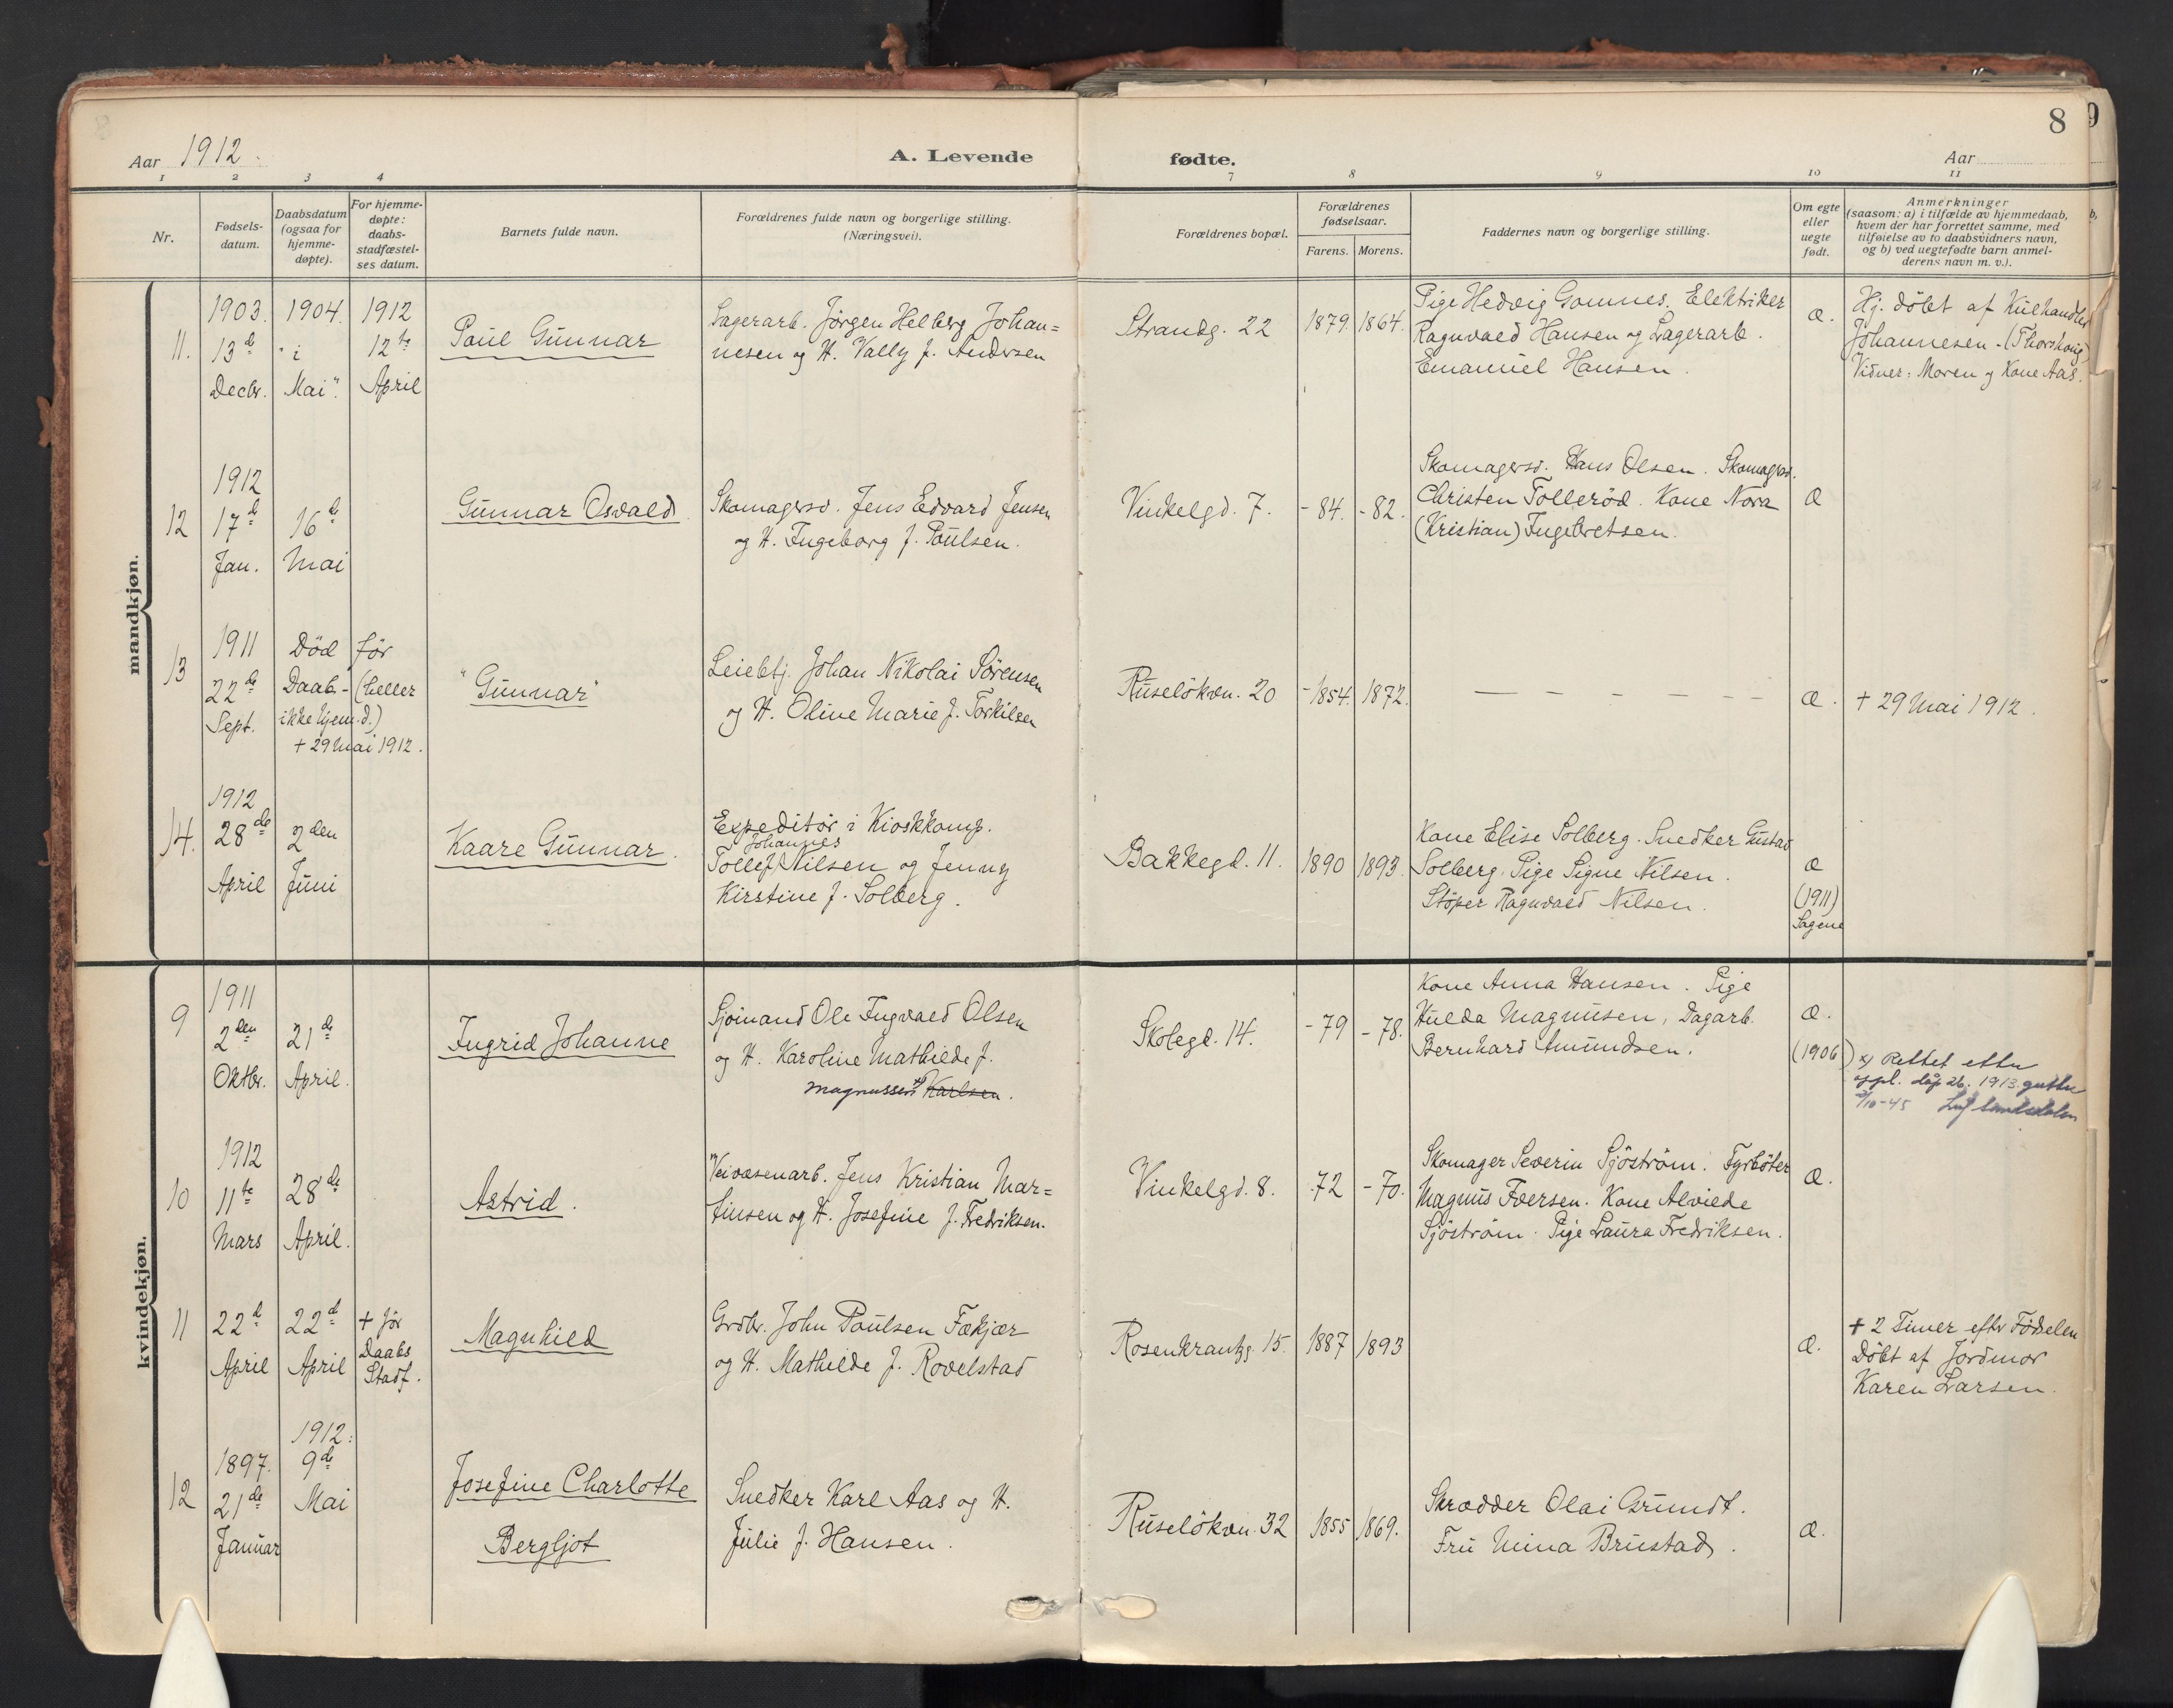 8
Aar 1912.
A. Levende
fødte.
Aar
1 2 3 4 7 8 9 10 11
Nr.
Fødsels-
datum.
Daabsdatum
(ogsaa for
hjemme-
døpte).
For hjemme-
døpte:
daabs-
stadfæstel-
ses datum.
Barnets fulde navn.
Forældrenes fulde navn og borgerlige stilling.
(Næringsvei).
Forældrenes bopæl.
Forældrenes
fødselsaar.
Farens. Morens.
Faddernes navn og borgerlige stilling.
Om egte
eller
uegte
født.
Anmerkninger
(saasom: a) i tilfælde av hjemmedaab,
hvem der har forrettet samme, med
tilføielse av to daabsvidners navn,
og b) ved uegtefødte barn anmel-
derens navn m. v.).
mandkjøn.
11.
1903.
13d
Decbr.
1904.
"i
Mai".
1912
12te
April
Paul Gunnar
Lagerarb. Jørgen Helberg Johan=
nesen og H. Vally f. Andersen
Strandg. 22
1879. 1864.
Pige Hedvig Gomnes. Elektriker
Ragnvald Hansen og Lagerarb.
Emanuel Hansen.
Æ.
Hj. döbt af Kulhandler
Johannesen - (Thorshaug)
Vidner: Moren og Kone Aas.
12
1912
17d
Jan.
16d
Mai
Gunnar Osvald
Skomagersv. Jens Edvard Jensen
og H. Ingeborg f. Paulsen.
Vinkelgd. 7.
- 84. - 82.
Skomagersv. Hans Olsen. Skomagersv.
Christen Tolleröd. Kone Nora
(Kristian) Ingebretsen.
Æ
13
1911
22de
Sept.
Död før
Daab - (heller
ikke hjem.d.)
+ 29 Mai 1912.
"Gunnar"
Leiebtj. Johan Nikolai Sörensen
og H. Oline Marie f. Torkilsen
Ruselökvn. 20
- 1854. 1872.
— — — — — — —
Æ.
+ 29 Mai 1912.
14.
1912
28de
April
2den
Juni
Kaare Gunnar.
Expeditör i Kioskkomp.
Johannes
Tollef Nilsen og Jenny
Kirstine f. Solberg.
Bakkegd. 11.
1890 1893.
Kone Elise Solberg. Snedker Gustav
Solberg. Pige Signe Nilsen.
Stöper Ragnvald Nilsen.
Æ
(1911)
Sagene
kvindekjøn.
9
1911
2den
Oktbr.
21de
April.
Ingrid Johanne
Sjömand Ole Ingvald Olsen
og H. Karoline Mathilde f.
Magnussen Karlsen.
Skolegd. 14.
- 79 - 78.
Kone Anna Hansen. Pige
Hulda Magnusen, Dagarb.
Bernhard Amundsen.
Æ.
(1906)
x) Rettet etter
10-45
10
1912
11te
Mars
28de
April.
Astrid.
Veivæsenarb. Jens Kristian Mar=
tinsen og H. Josefine f. Fredriksen.
Vinkelgd. 8.
72 - 70.
Skomager Severin Sjöström. Fyrböter
Magnus Iversen. Kone Alvilde
Sjöström. Pige Laura Fredriksen.
Æ.
11
22d
April
22d
April
+ før
Daabs
Stadf.
Magnhild
Grdbr. John Paulsen Fækjær
og H. Mathilde f. Rovelstad
Rosenkrantzg. 15.
1887 1893
Æ.
+ 2 Timer eftr Födselen
Döbt af Jordmor
Karen Larsen.
12
1897.
21de
Januar
1912:
9de
Mai
Josefine Charlotte
Bergljot
Snedker Karl Aas og H.
Julie f. Hansen.
Ruselökvn. 32
1855 1869.
Skrædder Olai Grundt.
Fru Mina Brustad.
Æ.